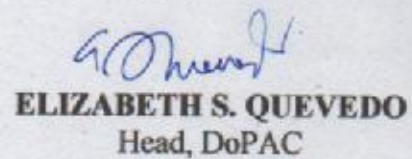 ELIZABETH S. QUEVEDO
Head, DoPAC